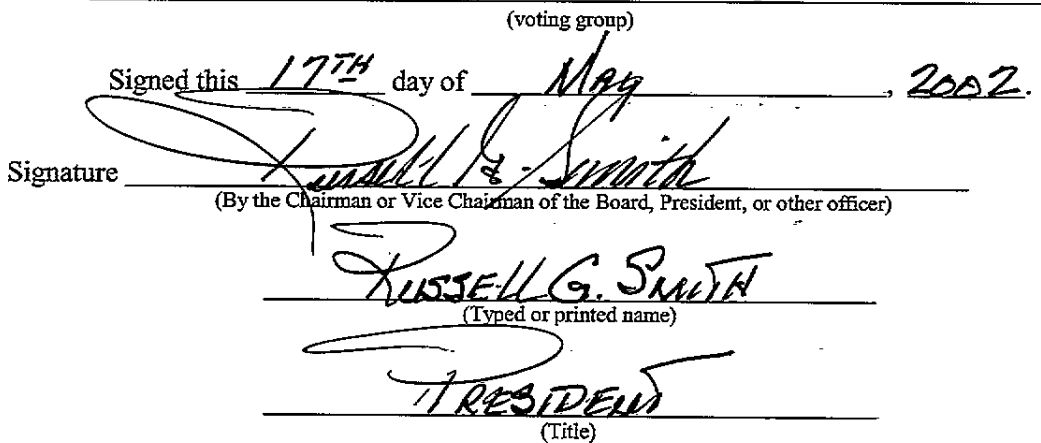 (voting group)
Signed this 17TH day of May, 2002.
Signature Russell G. Smith
(By the Chairman or Vice Chairman of the Board, President, or other officer)
RUSSELL G. SMITH
(Typed or printed name)
PRESIDENT
(Title)